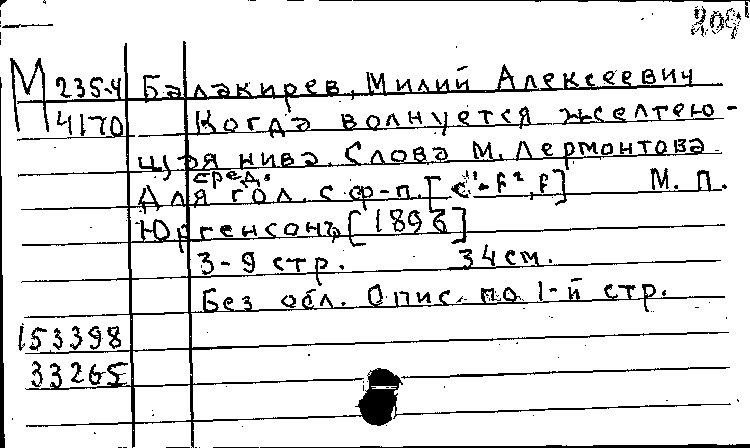 209
М 235-4 Балакирев, Милий Алексеевич
4170 Когда волнуется желтею-
щая нива. Слова М. Лермонтова.
сред.
Для гол. с ф-п. М. П.
Юргенсонъ, [1896]
3-9 стр. 34 см.
Без обл. Опис. по 1-й стр.
153398
33265